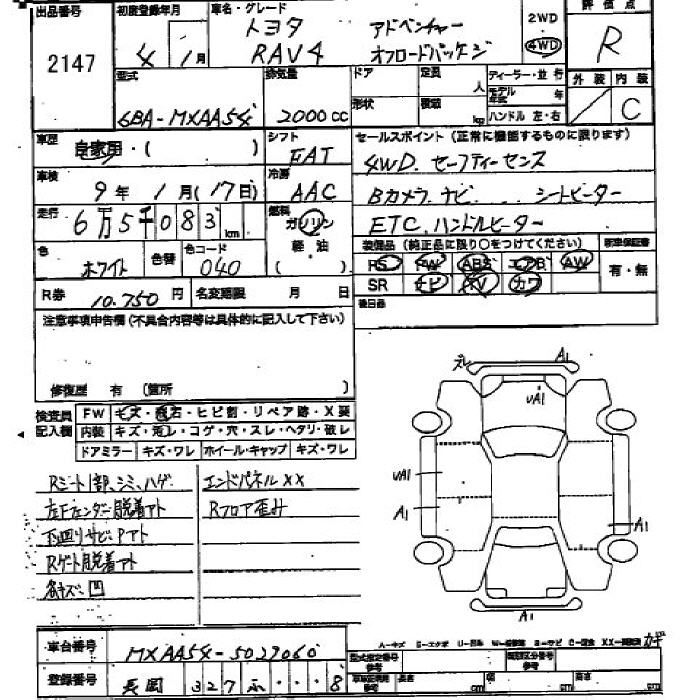 出品番号 初度登録年月 車名・グレード 2WD 評価点
2147 4年1月 トヨタ アドベンチャー 4WD R
RAV4 オフロードパッケージ
型式 排気量 ドア 定員 人 ディーラー・並行 外装 内装
形状 積載 kg モデル年式 年 C
6BA-MXAA54 2000cc ハンドル 左・右
車歴 自家用・( ) シフト セールスポイント (正常に機能するものに限ります)
FAT 4WD. セーフティーセンス
車検 9年1月(17日) 冷房 AAC Bカメラ.ナビ. シートヒーター
走行 6万5千083km 燃料 ガソリン ETC.ハンドルヒーター
軽油 ( ) 装備品 (純正品に限り○をつけてください) 新車保証書
色 ホワイト 色替 色コード 040 PS PW ABS エアB AW 有・無
SR ナビ TV カワ
R券 10.750円 名変期限 月 日 後日品
注意事項申告欄(不具合内容等は具体的に記入して下さい)
修復歴 有 (箇所 )
検査員記入欄 FW キズ・飛石・ヒビ割・リペア跡・X要
内装 キズ・汚レ・コゲ・穴・スレ・ヘタリ・破レ
ドアミラー キズ・ワレ ホイール・キャップ キズ・ワレ
Rシート1部、シミ、ハゲ エンドパネルXX
左Fフェンダー脱着アト Rフロア歪み
下回りサビ・Pアト
Rゲート脱着アト
各キズ・凹
スレ A1
UA1
UA1
A1 A1
A1
A-キズ E-エクボ U-凹み W-補修跡 S-サビ C-腐食 XX-交換済 カギ
車台番号 MXAA54-5027060 型式指定番号 参考 類別区分番号 参考
登録番号 長岡 327 ふ ・・・8 長さ cm 幅 cm 高さ cm